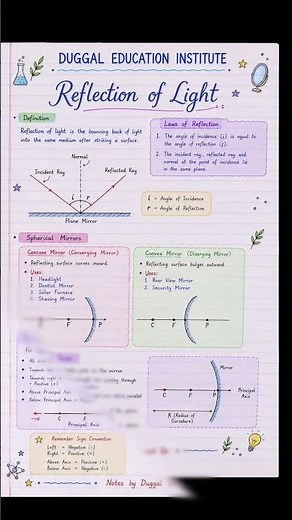 DUGGAL EDUCATION INSTITUTE
Reflection of Light
Definition
Reflection of light is the bouncing back of light
into the same medium after striking a surface.
Laws of Reflection
1. The angle of incidence (i) is equal to
the angle of reflection (r).
2. The incident ray, reflected ray and
normal at the point of incidence lie
in the same plane.
Normal
Incident Ray
Reflected Ray
i r
Plane Mirror
i = Angle of Incidence
r = Angle of Reflection
Spherical Mirrors
Concave Mirror (Converging Mirror)
Reflecting surface curves inward.
Uses:
1. Headlight
2. Dentist Mirror
3. Solar Furnace
4. Shaving Mirror
F P
Convex Mirror (Diverging Mirror)
Reflecting surface bulges outward.
Uses:
1. Rear View Mirror
2. Security Mirror
C F P
All
Towards the mirror
Towards right passing through
- Positive (+)
Above Principal Axis
Below Principal Axis parallel
-ve C F P
Principal Axis
Mirror
Principal
Axis
C F P
R (Radius of
Curvature)
Remember Sign Convention
Left = Negative (-)
Right = Positive (+)
Above Axis = Positive (+)
Below Axis = Negative (-)
Notes by Duggal